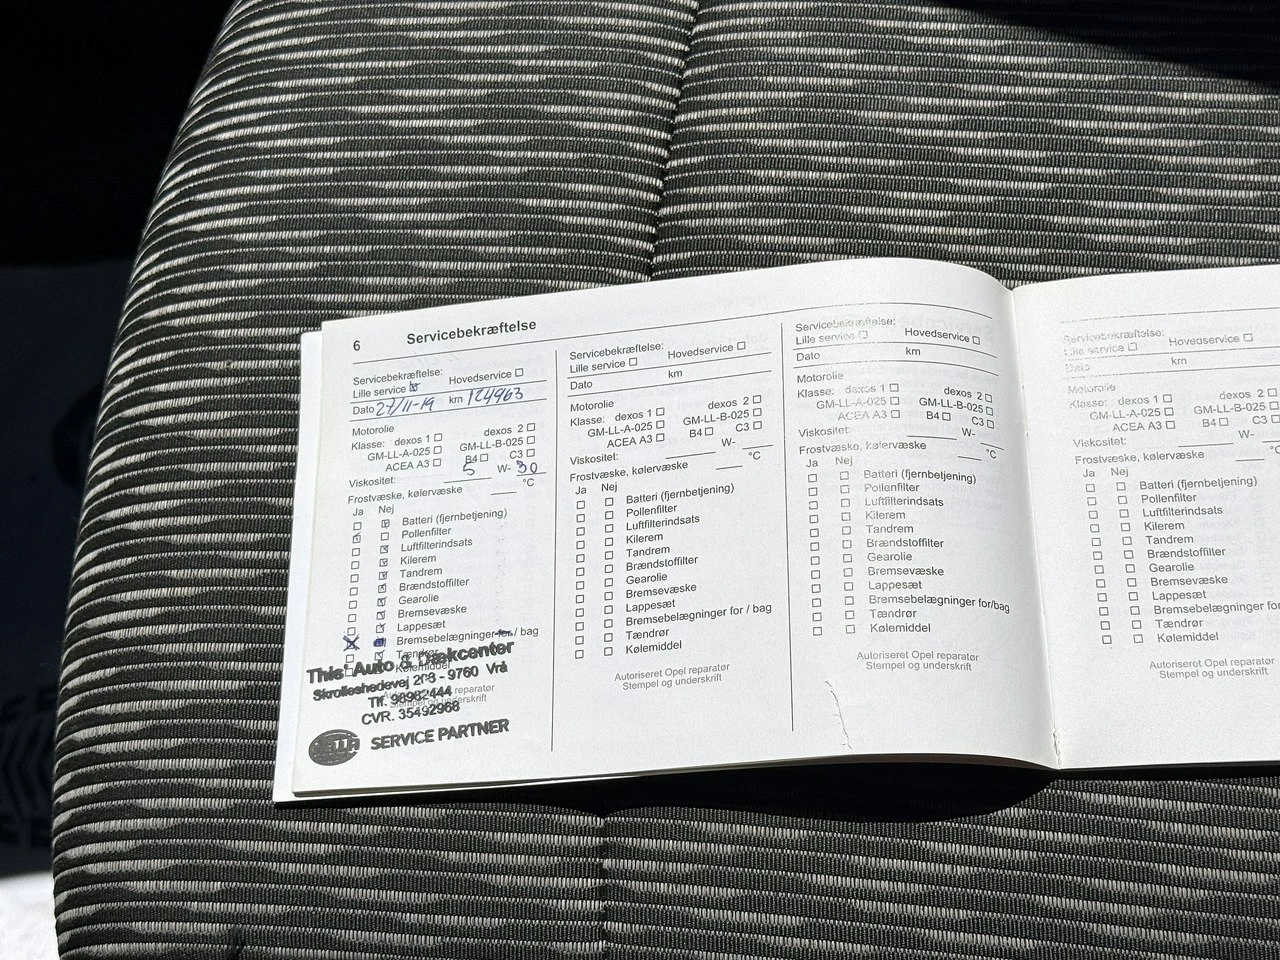 6 Servicebekræftelse
Servicebekræftelse:
Lille service ☒ Hovedservice ☐
Dato 27/11-19 km 124963
Motorolie
Klasse: dexos 1 ☐ dexos 2 ☐
GM-LL-A-025 ☐ GM-LL-B-025 ☐
ACEA A3 ☐ B4 ☐ C3 ☐
Viskositet: 5 W- 30
Frostvæske, kølervæske °C
Ja Nej
Batteri (fjernbetjening)
Pollenfilter
Luftfilterindsats
Kilerem
Tandrem
Brændstoffilter
Gearolie
Bremsevæske
Lappesæt
Bremsebelægninger for / bag
Tændrør
Kølemiddel
Autoriseret Opel reparatør
Stempel og underskrift
This' Auto & Dækcenter
Skrolleshedevej 2 3 - 9760 Vrå
Tlf. 98982444
CVR. 35492968
SERVICE PARTNER
Servicebekræftelse:
Lille service ☐ Hovedservice ☐
Dato km
Motorolie
Klasse: dexos 1 ☐ dexos 2 ☐
GM-LL-A-025 ☐ GM-LL-B-025 ☐
ACEA A3 ☐ B4 ☐ C3 ☐
Viskositet: W-
Frostvæske, kølervæske °C
Ja Nej
☐ ☐ Batteri (fjernbetjening)
☐ ☐ Pollenfilter
☐ ☐ Luftfilterindsats
☐ ☐ Kilerem
☐ ☐ Tandrem
☐ ☐ Brændstoffilter
☐ ☐ Gearolie
☐ ☐ Bremsevæske
☐ ☐ Lappesæt
☐ ☐ Bremsebelægninger for / bag
☐ ☐ Tændrør
☐ ☐ Kølemiddel
Autoriseret Opel reparatør
Stempel og underskrift
Servicebekræftelse:
Lille service ☐ Hovedservice ☐
Dato km
Motorolie
Klasse: dexos 1 ☐ dexos 2 ☐
GM-LL-A-025 ☐ GM-LL-B-025 ☐
ACEA A3 ☐ B4 ☐ C3 ☐
Viskositet: W-
Frostvæske, kølervæske °C
Ja Nej
☐ ☐ Batteri (fjernbetjening)
☐ ☐ Pollenfilter
☐ ☐ Luftfilterindsats
☐ ☐ Kilerem
☐ ☐ Tandrem
☐ ☐ Brændstoffilter
☐ ☐ Gearolie
☐ ☐ Bremsevæske
☐ ☐ Lappesæt
☐ ☐ Bremsebelægninger for/bag
☐ ☐ Tændrør
☐ ☐ Kølemiddel
Autoriseret Opel reparatør
Stempel og underskrift
Servicebekræftelse:
Lille service ☐ Hovedservice ☐
Dato km
Motorolie
Klasse: dexos 1 ☐ dexos 2 ☐
GM-LL-A-025 ☐ GM-LL-B-025
ACEA A3 ☐ B4 ☐ C3 ☐
Viskositet: W-
Frostvæske, kølervæske °C
Ja Nej
☐ ☐ Batteri (fjernbetjening)
☐ ☐ Pollenfilter
☐ ☐ Luftfilterindsats
☐ ☐ Kilerem
☐ ☐ Tandrem
☐ ☐ Brændstoffilter
☐ ☐ Gearolie
☐ ☐ Bremsevæske
☐ ☐ Lappesæt
☐ ☐ Bremsebelægninger
☐ ☐ Tændrør
☐ ☐ Kølemiddel
Autoriseret Opel reparatør
Stempel og underskrift